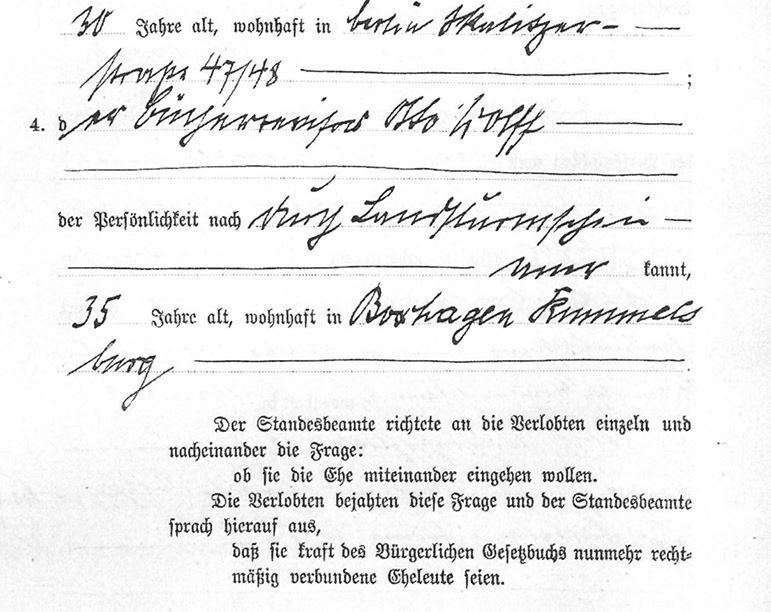 30 Jahre alt, wohnhaft in Berlin Skalitzer-
straße 47/48 ;
4. der Bücherrevisor Otto Wolff
der Persönlichkeit nach durch Landsturmschein
aner kannt,
35 Jahre alt, wohnhaft in Boxhagen Rummels
burg .
Der Standesbeamte richtete an die Verlobten einzeln und
nacheinander die Frage:
ob sie die Ehe miteinander eingehen wollen.
Die Verlobten bejahten diese Frage und der Standesbeamte
sprach hierauf aus,
daß sie kraft des Bürgerlichen Gesetzbuchs nunmehr recht-
mäßig verbundene Eheleute seien.